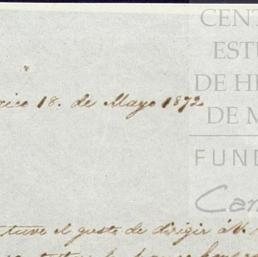 CENT
EST
DE H
DE M
FUND
Car
xico 18. de Mayo 1872
tuve el gusto de dirigir á V.